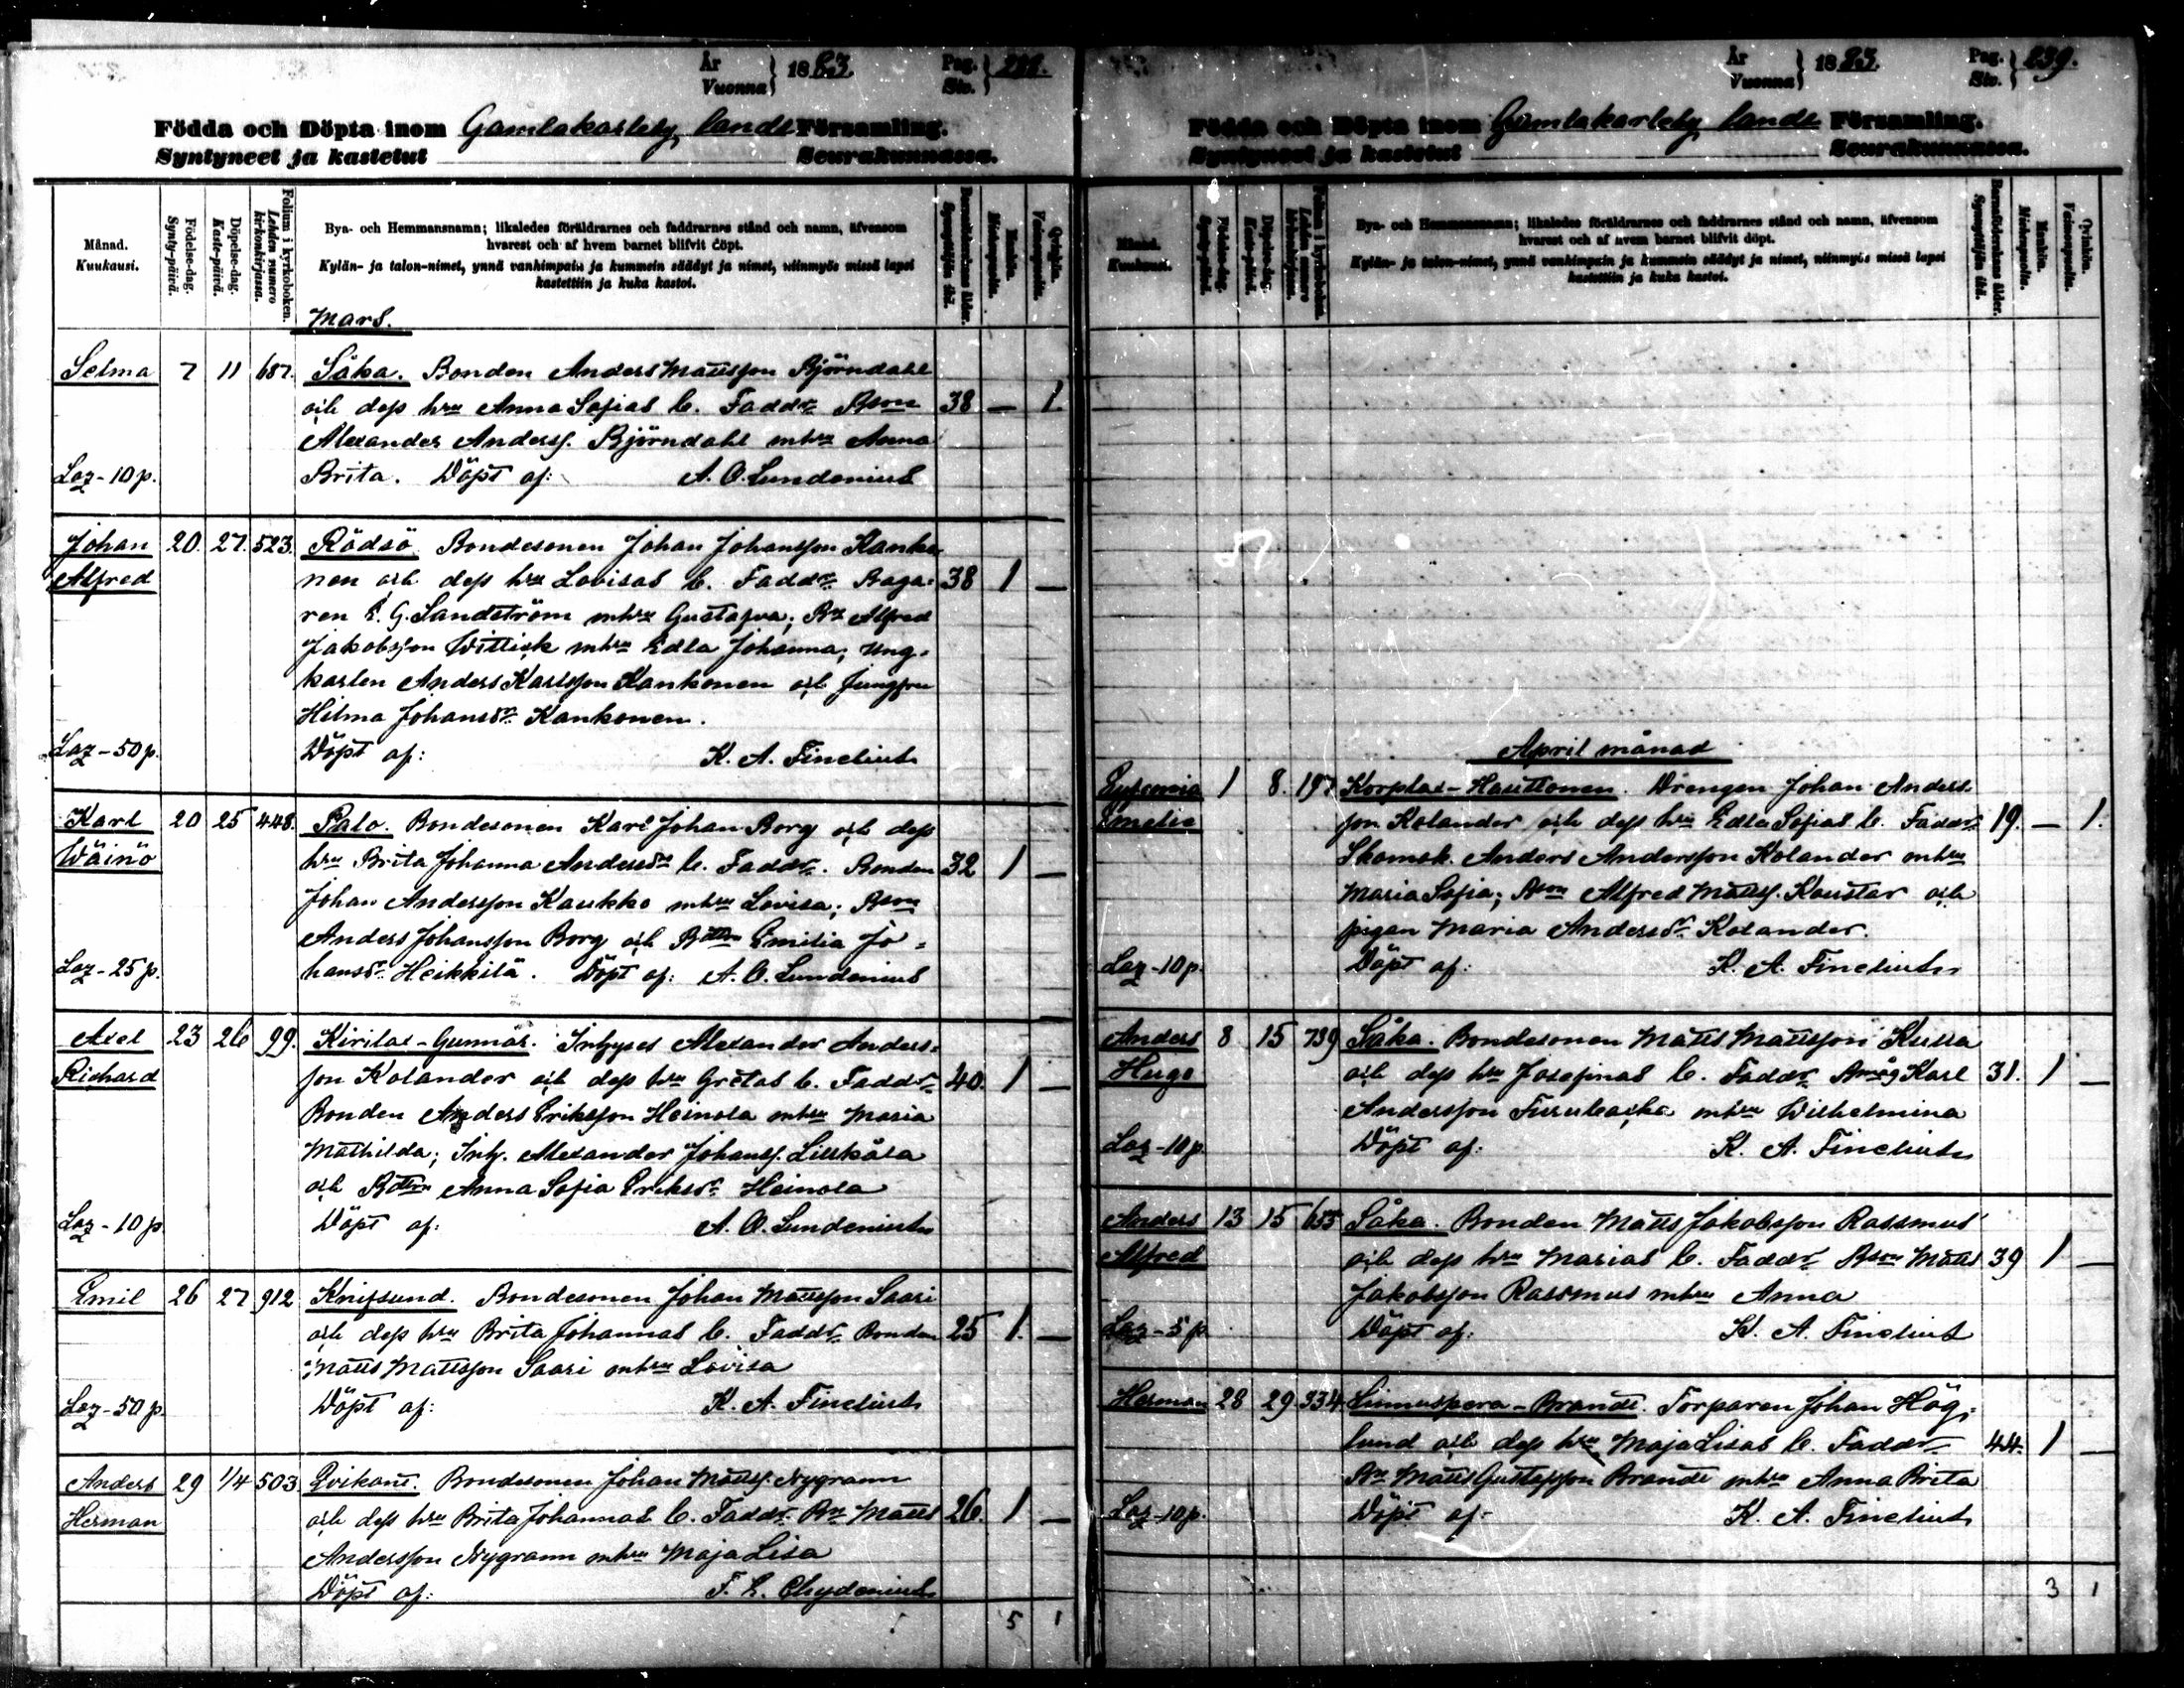 År
Vuonna } 1883.
Pag.
Siv. } 238.
Födda och Döpta inom Gamlakarleby lands Församling.
Syntyneet ja kastetut Seurakunnassa.
Månad.
Kuukausi.
Födelse-dag.
Synty-päivä.
Döpelse-dag.
Kaste-päivä.
Folium i kyrkoboken.
Lehden numero kirkonkirjassa.
Bya- och Hemmansnamn; likaledes föräldrarnes och faddrarnes stånd och namn, äfvensom
hvarest och af hvem barnet blifvit döpt.
Kylän- ja talon-nimet, ynnä vanhimpain ja kummein säädyt ja nimet, niinmyös missä lapsi
kastettiin ja kuka kastoi.
Barnaföderskans ålder.
Synnyttäjän ikä.
Mankön.
Miehenpuolia.
Qvinkön.
Vaimonpuolia.
Mars.
Selma 7 11 687. Såka. Bonden Anders Mattsson Björndahl
och dess hru Anna Sofias b. Faddr Bson 38 — 1.
Alexander Anderss. Björndahl mhru Anna
Laz - 10 p. Brita. Döpt af: A. O. Lundenius
Johan 20. 27. 523. Rödsö Bondesonen Johan Johansson Kanko-
Alfred nen och dess hru Lovisas b. Faddr Baga- 38 1 —
ren G. Sandström mhru Gustafva; Bn Alfred
Jakobsson Wittick mhru Edla Johanna; Ung-
karlen Anders Karlsson Kankonen och Jungfru
Hilma Johansdr Kankonen.
Laz - 50 p. Döpt af: K. A. Finelius
Karl 20 25 448. Palo. Bondesonen Karl Johan Borg och dess
Wäinö hru Brita Johanna Andersdr b. Faddr. Bonden 32 1 —
Johan Andersson Kaukko mhru Lovisa; Bson
Anders Johansson Borg och Bdttrn Emilia Jo-
Laz - 25 p. hansdr Heikkilä. Döpt af: A. O. Lundenius
Axel 23 26 99. Kirilax - Gunnar. Inhyses Alexander Anders-
Richard son Kolander och dess hru Gretas b. Faddr 40. 1 —
Bonden Anders Eriksson Heinola mhru Maria
Mathilda; Inh. Alexander Johanss. Lillkåla
och Bdttrn Anna Sofia Eriksdr Heinola
Laz - 10 p Döpt af: A. O. Lundenius
Emil 26 27 912 Knifsund. Bondesonen Johan Mattsson Saari
och dess hru Brita Johannas b. Faddr Bonden 25 1. —
Matts Mattsson Saari mhru Lovisa
Laz - 50 p. Döpt af: K. A. Finelius
Anders 29 1/4 503 Qvikant. Bondesonen Johan Matts. Nygrann
Herman och dess hru Brita Johannas b. Faddr. Bn Matts 26. 1 —
Andersson Nygrann mhru Maja Lisa
Döpt af: F. E. Chydenius
5 1
År
Vuonna } 1883.
Pag.
Siv. } 239.
Födda och Döpta inom Gamlakarleby lands Församling.
Syntyneet ja kastetut Seurakunnassa.
Månad.
Kuukausi.
Födelse-dag.
Synty-päivä.
Döpelse-dag.
Kaste-päivä.
Folium i kyrkoboken.
Lehden numero kirkonkirjassa.
Bya- och Hemmansnamn; likaledes föräldrarnes och faddrarnes stånd och namn, äfvensom
hvarest och af hvem barnet blifvit döpt.
Kylän- ja talon-nimet, ynnä vanhimpain ja kummein säädyt ja nimet, niinmyös missä lapsi
kastettiin ja kuka kastoi.
Barnaföderskans ålder.
Synnyttäjän ikä.
Mankön.
Miehenpuolia.
Qvinkön.
Vaimonpuolia.
April månad
Eufemia 1 8. 197 Korplax - Hauttonen. Drängen Johan Anders-
Emelie son Kolander och dess hru Edla Sofias b. Faddr 19. — 1.
Skomak. Anders Andersson Kolander mhru
Maria Sofia; Bson Alfred Matts. Koustar och
pigan Maria Andersdr Kolander.
Laz - 10 p. Döpt af: K. A. Finelius
Anders 8 15 739 Såka. Bondesonen Matts Mattsson Kulla
Hugo och dess hru Josefinas b. Faddr Bmåg Karl 31. 1 —
Andersson Furubacka mhru Wilhelmina
Laz - 10 p. Döpt af: K. A. Finelius
Anders 13 15 655 Såka. Bonden Matts Jakobsson Rassmus
Alfred och dess hru Marias b. Faddr Bson Matts 39 1 —
Jakobsson Rassmus mhru Anna
Laz - 5 p Döpt af: K. A. Finelius
Herman 28 29 334. Linnuspera - Brandt. Torparen Johan Hög-
lund och dess hru Maja Lisas b. Faddr 44. 1 —
Bn Matts Gustafsson Brandt mhru Anna Brita
Laz - 10 p. Döpt af - K. A. Finelius
3 1